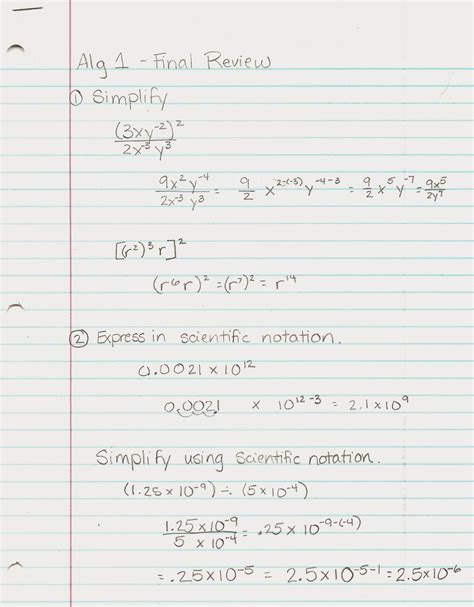 Alg 1 - Final Review
① Simplify
(3xy⁻²)² / 2x⁻³y³
9x²y⁻⁴ / 2x⁻³y³ = 9/2 x²⁻⁽⁻³⁾y⁻⁴⁻³ = 9/2 x⁵y⁻⁷ = 9x⁵/2y⁷
[(r²)³r]²
(r⁶r)² = (r⁷)² = r¹⁴
② Express in scientific notation.
0.0021 x 10¹²
0.0021 x 10¹²⁻³ = 2.1 x 10⁹
Simplify using scientific notation.
(1.25 x 10⁻⁹) ÷ (5 x 10⁻⁴)
1.25 x 10⁻⁹ / 5 x 10⁻⁴ = .25 x 10⁻⁹⁻⁽⁻⁴⁾
= .25 x 10⁻⁵ = 2.5 x 10⁻⁵⁻¹ = 2.5 x 10⁻⁶